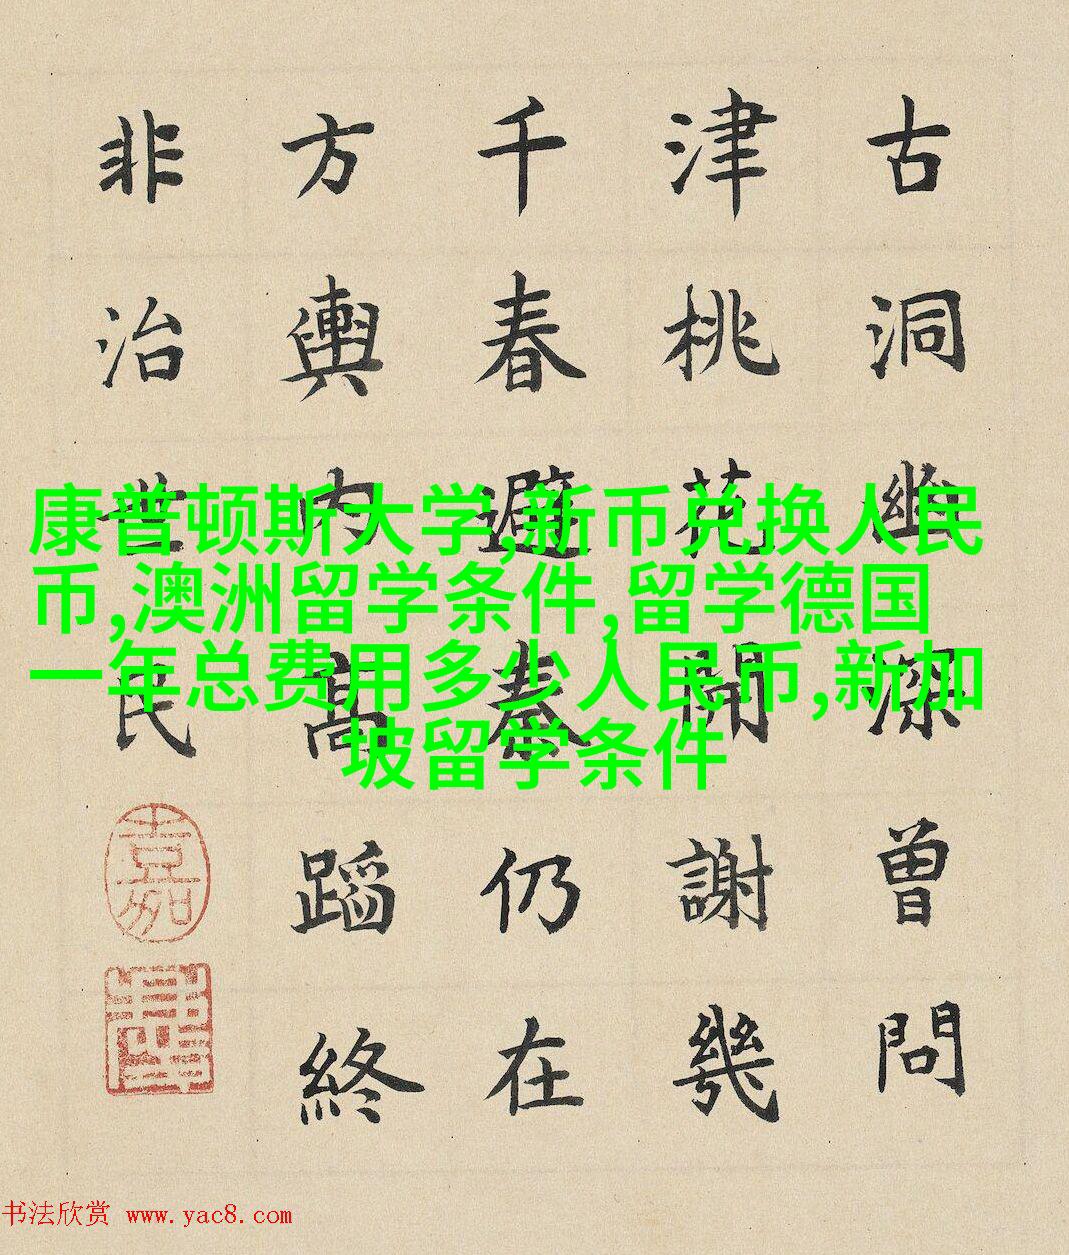 古洞幽深曾問
津桃花開謝幾
千春避秦仍在
方輿内高蹈終
非治世民
康普顿斯大学,新币兑换人民
币,澳洲留学条件,留学德国
一年总费用多少人民币,新加
坡留学条件
书法欣赏 www.yac8.com